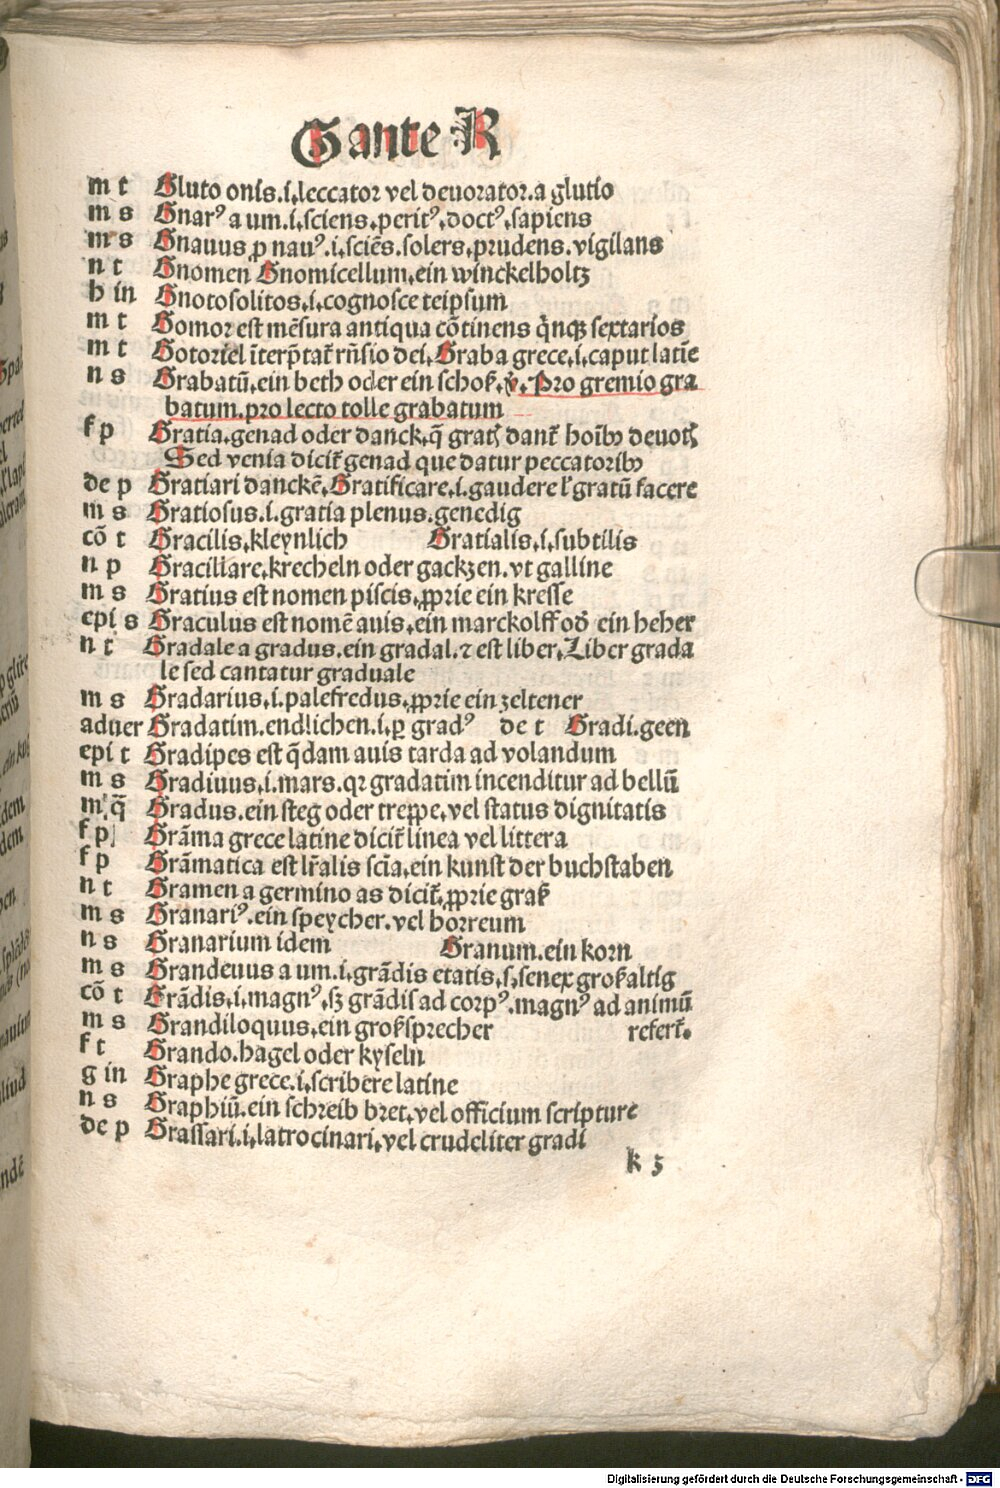 G ante R
m t Gluto onis.i.leccator vel deuorator.a glutio
m s Gnarꝰ a um.i.sciens.peritꝰ.doctꝰ.sapiens
m s Gnauus ꝓ nauꝰ.i.sciēs.solers.prudens.vigilans
n t Gnomen Gnomicellum.ein winckelholtz
h in Gnotosolitos.i.cognosce teipsum
m t Gomor est mēsura antiqua cōtinens q̇nqꝫ sextarios
m t Gotoriel īterp̄tat᷑ rn̄sio dei.Graba grece.i.caput latīe
n s Grabatū.ein beth oder ein schoß.v̇.Pro gremio gra
batum.pro lecto tolle grabatum
f p Gratia.genad oder danck.q̄ gratꝭ dant᷑ hoībꝰ deuotꝭ
Sed venia dicit᷑ genad que datur peccatoribꝰ
de p Gratiari danckē.Gratificare.i.gaudere vel gratū facere
m s Gratiosus.i.gratia plenus.genedig
cō t Gracilis.kleynlich Gratialis.i.subtilis
n p Gracillare.krecheln oder gackzen.vt galline
m s Gratius est nomen piscis.ꝓprie ein kresse
epi s Graculus est nomē auis.ein marckolff od̄ ein heher
n t Gradale a gradus.ein gradal.⁊ est liber.Liber grada
le sed cantatur graduale
m s Gradarius.i.palefredus.ꝓprie ein zeltener
aduer Gradatim.endlichen.i.ꝑ gradꝰ de t Gradi.geen
epi t Gradipes est q̄dam auis tarda ad volandum
m s Gradiuus.i.mars.qꝛ gradatim incenditur ad bellū
m q̄ Gradus.ein steg oder treppe.vel status dignitatis
f p Grāma grece latine dicit᷑ linea vel littera
f p Grāmatica est lr̄alis scīa.ein kunst der buchstaben
n t Gramen a germino as dicit᷑.ꝓprie graß
m s Granariꝰ.ein speycher.vel horreum
n s Granarium idem Granum.ein korn
m s Grandeuus a um.i.grādis etatis.s.senex großaltig
cō t Grādis.i.magnꝰ.sꝫ grādis ad corpꝰ.magnꝰ ad animū
m s Grandiloquus.ein großsprecher refert᷑.
f t Grando.hagel oder kyseln
g in Graphe grece.i.scribere latine
n s Graphiū.ein schreib bret.vel officium scripture
de p Grassari.i.latrocinari.vel crudeliter gradi
k 5
Digitalisierung gefördert durch die Deutsche Forschungsgemeinschaft - DFG